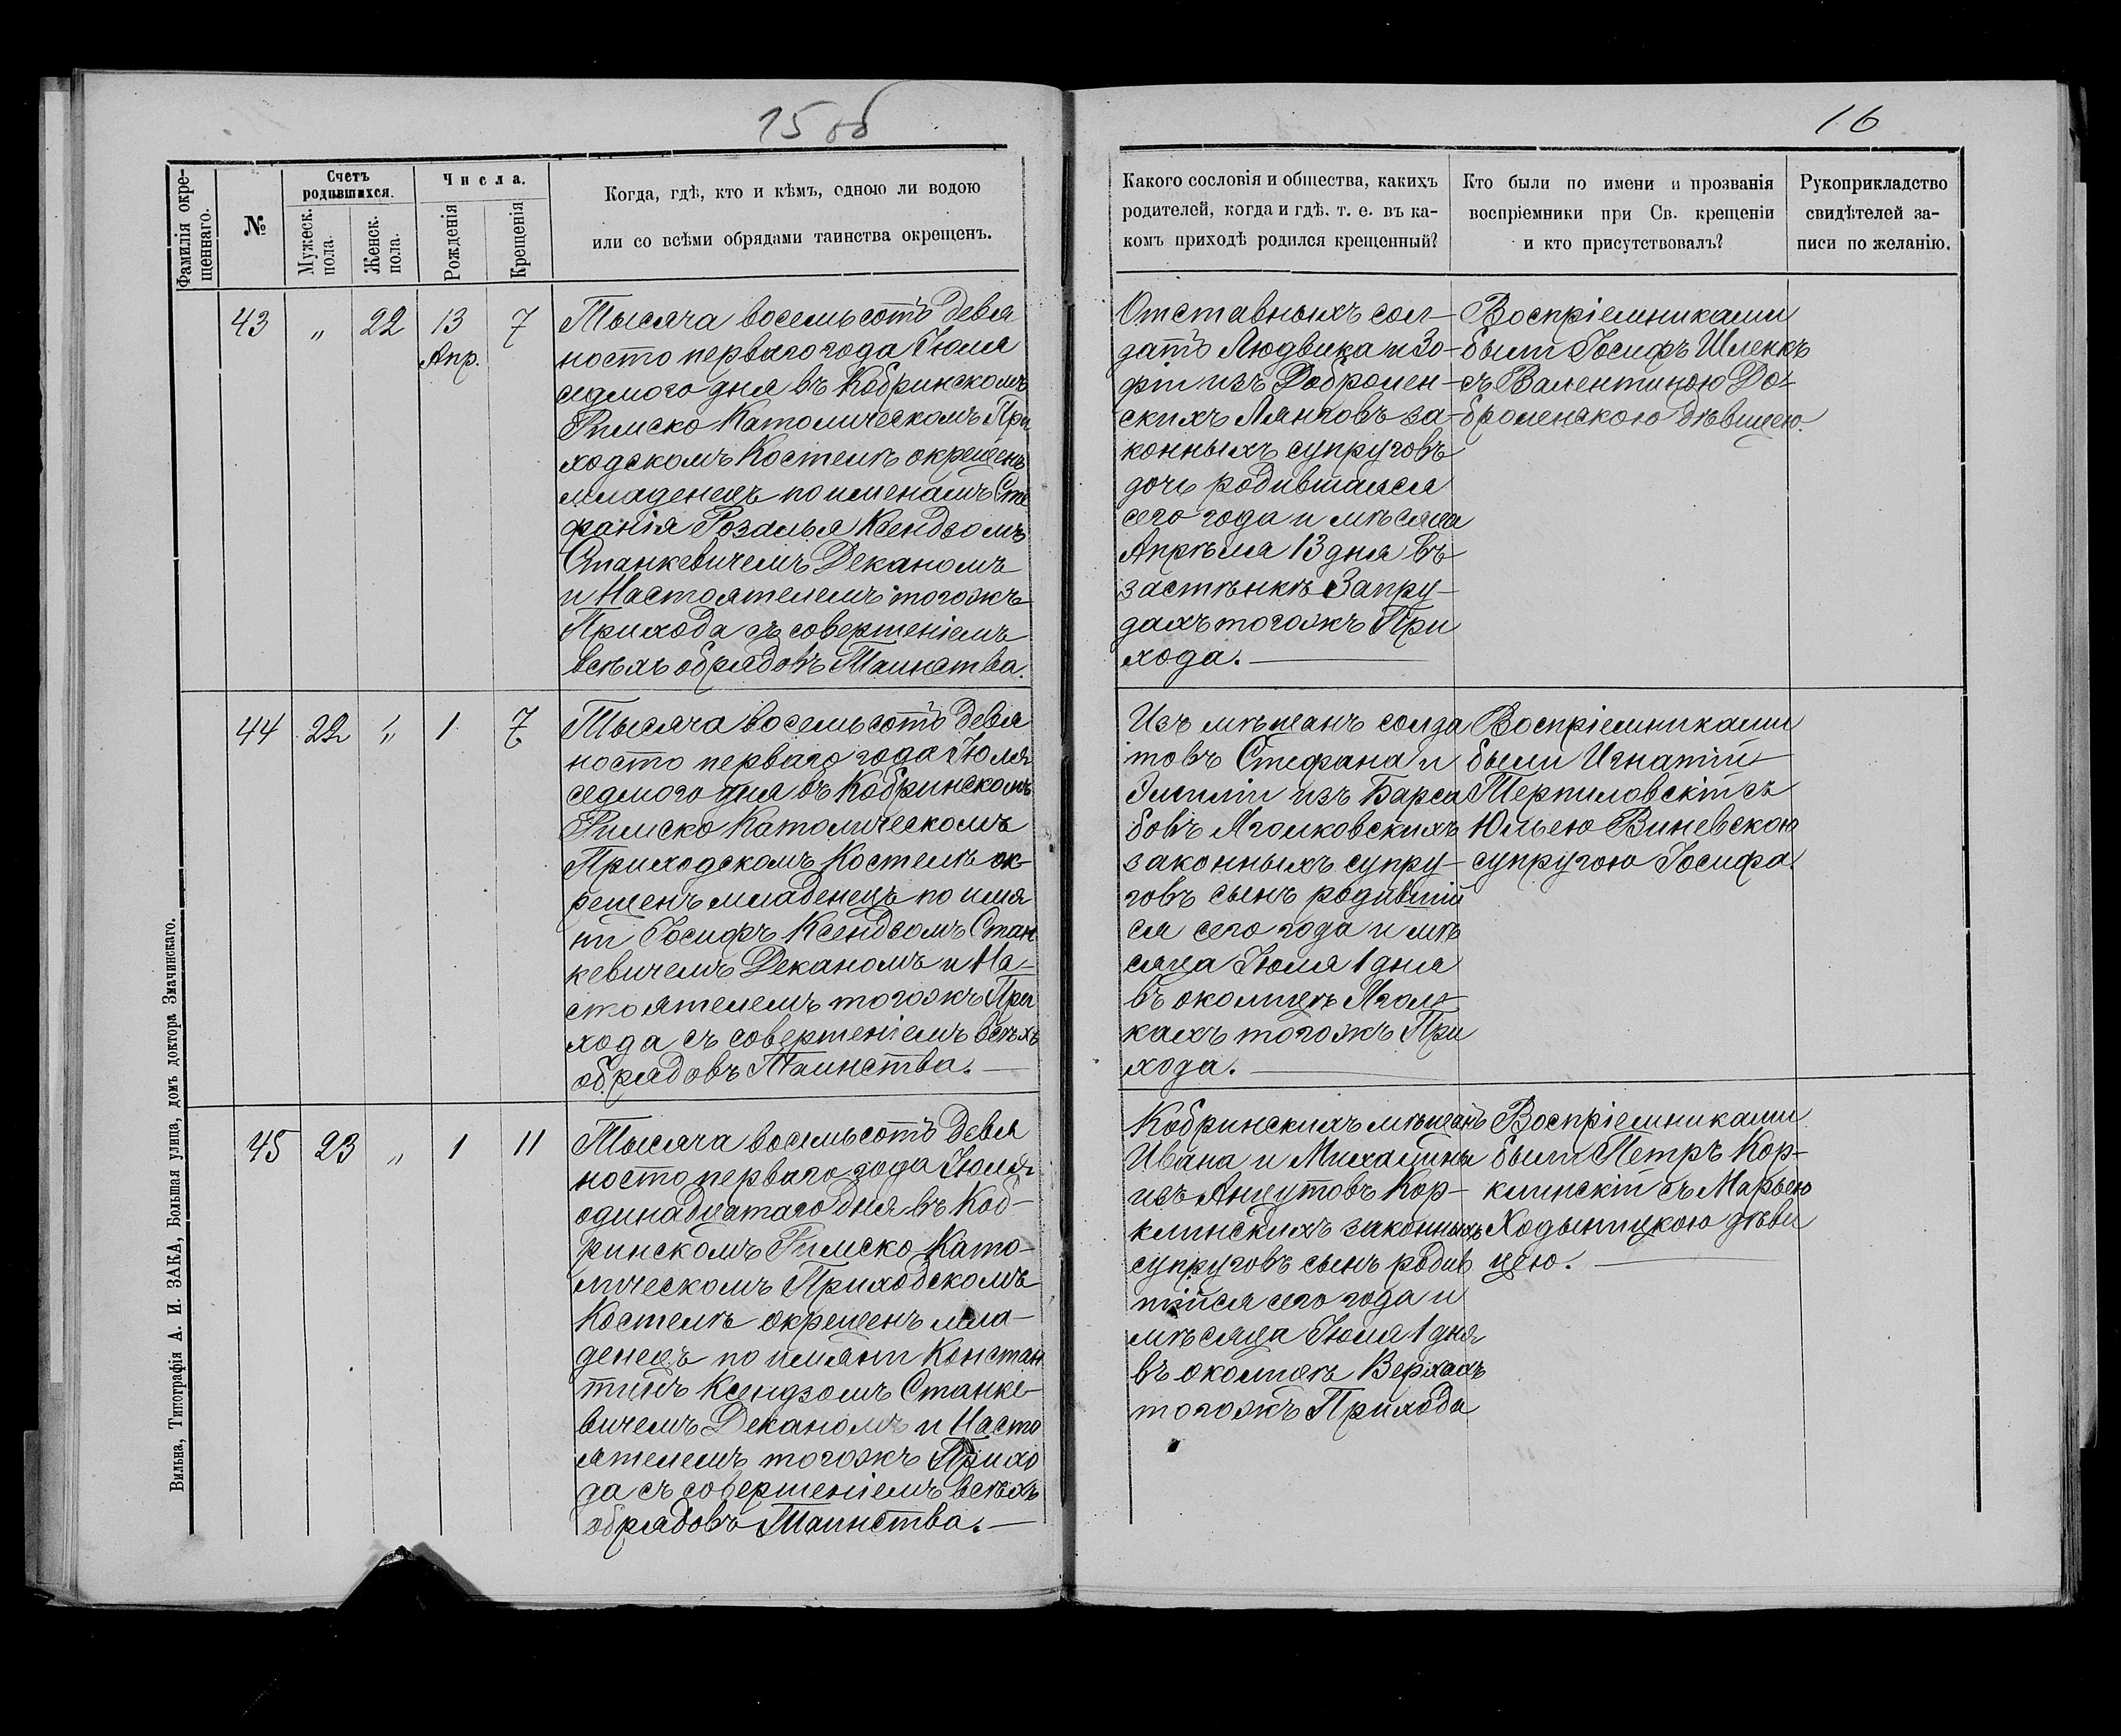 15 об
16
Фамилія окре-
щеннаго.
№
Счетъ
родившихся.
Мужеск.
пола.
Женск.
пола.
Числа.
Рожденія
Крещенія
Когда, гдѣ, кто и кѣмъ, одною ли водою
или со всѣми обрядами таинства окрещенъ.
Какого сословія и общества, какихъ
родителей, когда и гдѣ. т. е. въ ка-
комъ приходѣ родился крещенный?
Кто были по имени и прозванія
воспріемники при Св. крещеніи
и кто присутствовалъ?
Рукоприкладство
свидѣтелей за-
писи по желанію.
43 " 22 13 7
Апр.
Тысяча восемьсотъ девя
носто перваго года Іюля
седмого дня въ Кобринскомъ
Римско Католическомъ При
ходскомъ Костелѣ окрещенъ
младенецъ по именамъ Сте
фанія Розалья Ксендзомъ
Станкевичемъ Деканомъ
и Настоятелемъ тогожъ
Прихода съ совершеніемъ
всѣхъ обрядовъ Таинства.
Отставныхъ сол-
датъ Людвика и Зо-
фіи изъ Добромен-
скихъ Лянговъ за-
конныхъ супруговъ
дочь родившаяся
сего года и мѣсяца
Апрѣля 13 дня въ
застѣнкѣ Запру-
дахъ тогожъ При
хода.
Воспріемниками
были Іосифъ Шленкъ
съ Валентиною До-
броменскою дѣвицею.
44 22 " 1 7
Тысяча восемьсотъ девя
носто перваго года Іюля
седмого дня въ Кобринскомъ
Римско Католическомъ
Приходскомъ Костелѣ ок-
рещенъ младенецъ по имя
ни Іосифъ Ксендзомъ Стан
кевичемъ Деканомъ и На-
стоятелемъ тогожъ При
хода съ совершеніемъ всѣхъ
обрядовъ Таинства.
Изъ мѣщанъ солда
товъ Стефана и
Эмиліи изъ Барса
бовъ Яголковскихъ
законныхъ супру-
говъ сынъ родившій
ся сего года и мѣ
сяца Іюля 1 дня
въ околицѣ Ягол-
кахъ тогожъ При
хода.
Воспріемниками
были Игнатій
Терпиловскій съ
Юльею Виневскою
супругою Іосифа.
45 23 " 1 11
Тысяча восемьсотъ девя
носто перваго года Іюля
одинадцатаго дня въ Коб-
ринскомъ Римско Като-
лическомъ Приходскомъ
Костелѣ окрещенъ мла-
денецъ по имяни Констан
тинъ Ксендзомъ Станке-
вичемъ Деканомъ и Насто
ятелемъ тогожъ Прихо
да съ совершеніемъ всѣхъ
обрядовъ Таинства.
Кобринскихъ мѣщанъ
Ивана и Михалины
изъ Анцутовъ Кор-
клинскихъ законныхъ
супруговъ сынъ родив
шійся сего года и
мѣсяца Іюля 1 дня
въ околицѣ Верхахъ
тогожъ Прихода
Воспріемниками
были Петръ Кор-
клинскій съ Марьею
Ходыницкою дѣви
цею.
Вильна, Типографія А. И. ЗАКА, Большая улица, домъ доктора Змачинскаго.